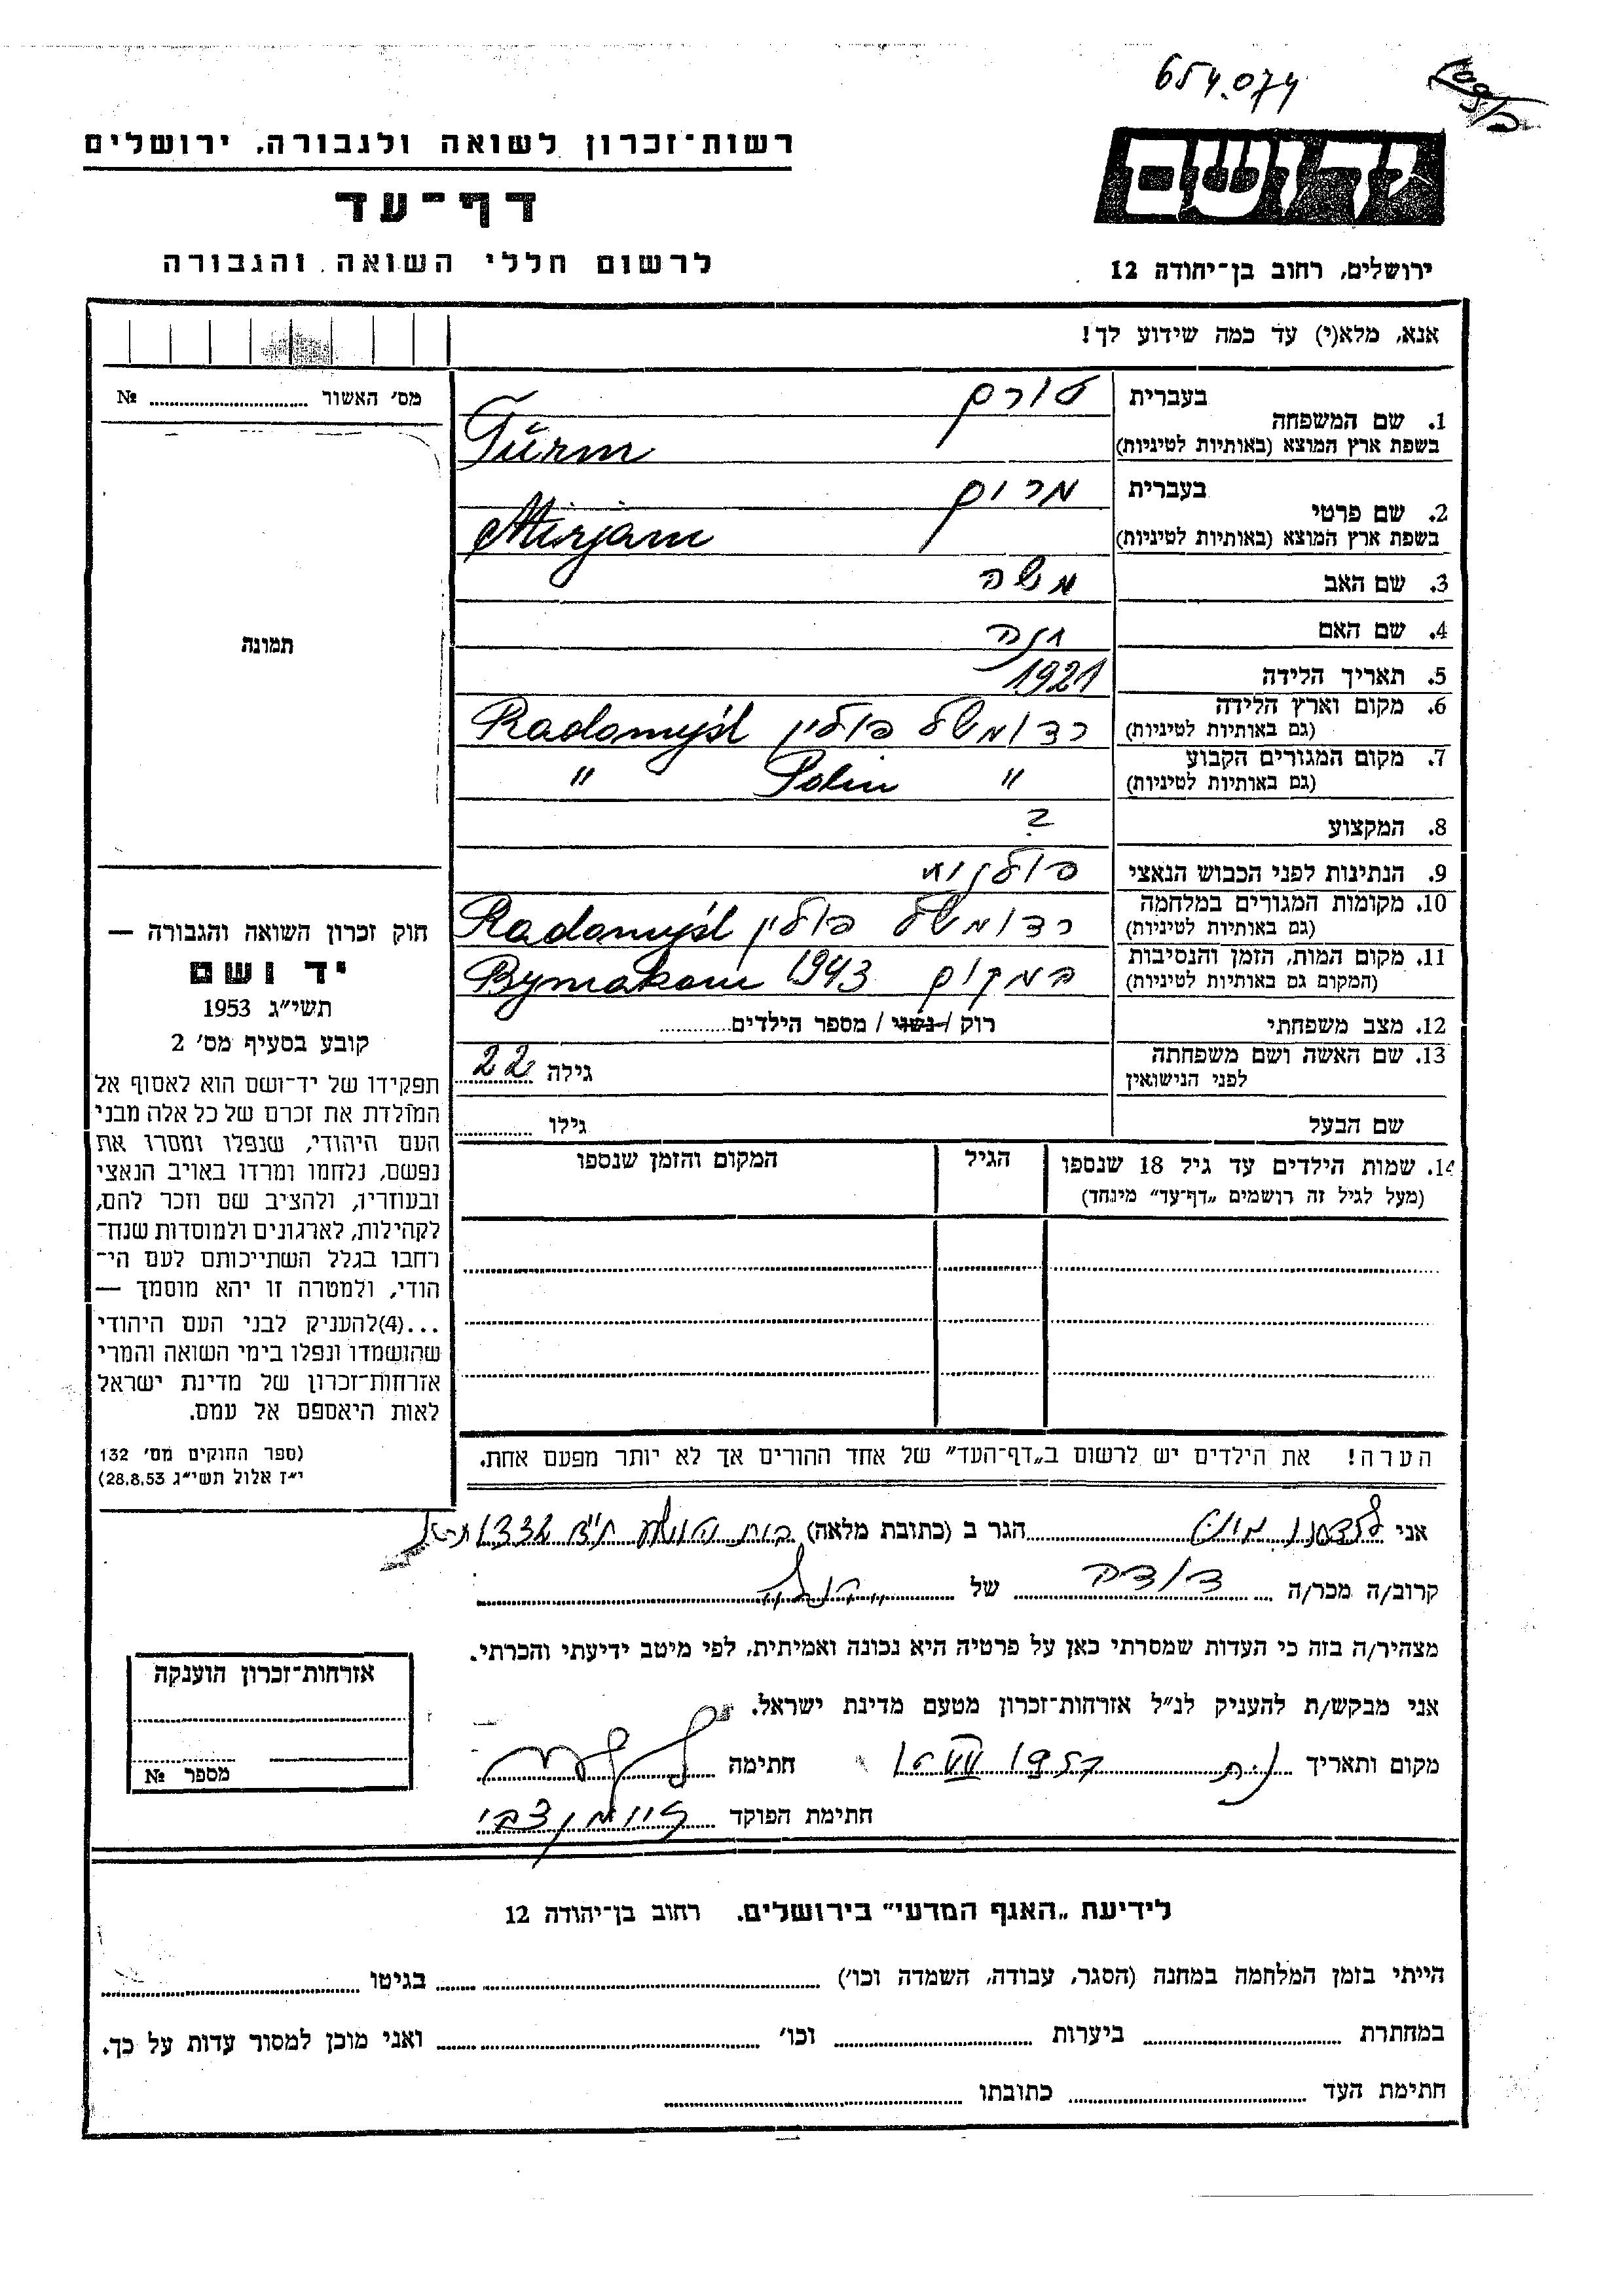 654.074
רשות־זכרון לשואה ולגבורה, ירושלים
דף־עד
לרשום חללי השואה והגבורה
יד ושם
ירושלים, רחוב בן־יהודה 12
אנא, מלא(י) עד כמה שידוע לך!
מס׳ האשור № 
1. שם המשפחה
בעברית טורם
בשפת ארץ המוצא (באותיות לטיניות) Türm
2. שם פרטי
בעברית מרים
בשפת ארץ המוצא (באותיות לטיניות) Mirjam
3. שם האב משה
4. שם האם חנה
5. תאריך הלידה 1921
6. מקום וארץ הלידה
(גם באותיות לטיניות) רדומישל פולין Radomyśl
7. מקום המגורים הקבוע
(גם באותיות לטיניות) " Polin "
8. המקצוע ?
9. הנתינות לפני הכבוש הנאצי פולנית
10. מקומות המגורים במלחמה
(גם באותיות לטיניות) רדומישל פולין Radomyśl
11. מקום המות, הזמן והנסיבות
(המקום גם באותיות לטיניות) במקום 1943 Bymakom
12. מצב משפחתי רוק / נשוי / מספר הילדים
13. שם האשה ושם משפחתה
לפני הנישואין גילה 22
שם הבעל גילו
14. שמות הילדים עד גיל 18 שנספו
(מעל לגיל זה רושמים „דף־עד” מיוחד)
הגיל
המקום והזמן שנספו
הערה! את הילדים יש לרשום ב„דף־העד” של אחד ההורים אך לא יותר מפעם אחת.
תמונה
חוק זכרון השואה והגבורה —
יד ושם
תשי״ג 1953
קובע בסעיף מס׳ 2
תפקידו של יד־ושם הוא לאסוף אל
המולדת את זכרם של כל אלה מבני
העם היהודי, שנפלו ומסרו את
נפשם, נלחמו ומרדו באויב הנאצי
ובעוזריו, ולהציב שם וזכר להם,
לקהילות, לארגונים ולמוסדות שנח־
רחבו בגלל השתייכותם לעם הי־
הודי, ולמטרה זו יהא מוסמך —
...(4)להעניק לבני העם היהודי
שהושמדו ונפלו בימי השואה והמרי
אזרחות־זכרון של מדינת ישראל
לאות היאספם אל עמם.
(ספר החוקים מס׳ 132
י״ז אלול תשי״ג 28.8.53)
אני הגר ב (כתובת מלאה)
קרוב/ה מכר/ה דודה של
מצהיר/ה בזה כי העדות שמסרתי כאן על פרטיה היא נכונה ואמיתית, לפי מיטב ידיעתי והכרתי.
אני מבקש/ת להעניק לנ״ל אזרחות־זכרון מטעם מדינת ישראל.
מקום ותאריך 1957 חתימה
חתימת הפוקד צבי
אזרחות־זכרון הוענקה
מספר №
לידיעת „האגף המדעי” בירושלים. רחוב בן־יהודה 12
הייתי בזמן המלחמה במחנה (הסגר, עבודה, השמדה וכו׳) בגיטו
במחתרת ביערות וכו׳ ואני מוכן למסור עדות על כך.
חתימת העד כתובתו